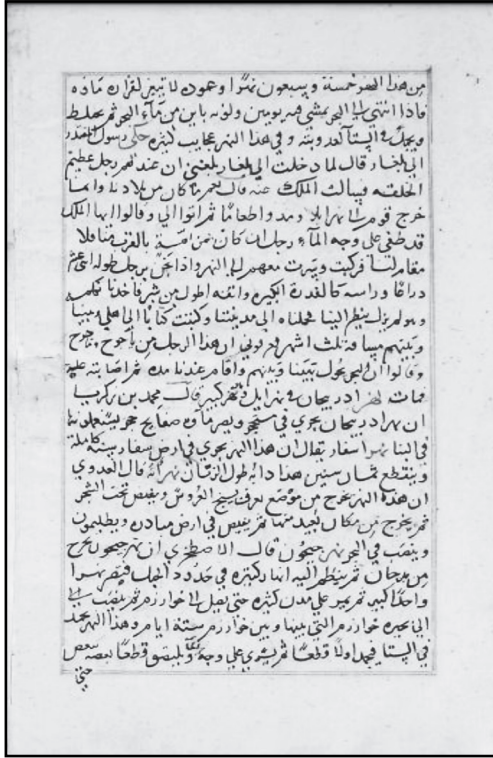 من هذا النهر خمسة وسبعون نهرا وعموده لا يتغير لغزارة مائه
فاذا انتهى الى البحر يمشي فيه يومين ولونه باين من ماء البحر ثم يختلط
ويجمد في الشتا لعذوبته وفي هذا النهر عجايب كثيرة حكى رسول المقتدر
الى بلغار قال لما دخلت الى بلغار بلغني ان عندهم رجل عظيم
الخلقة فسالت الملك عنه قال نعم ما كان من بلادنا وانما
خرج قوم الى نهر اتل ومد واطغا ما ثم اتوا الي وقالوا ايها الملك
قد طفي على وجه الماء رجل ان كان من امة بالقرب منا فلا
مقام لنا فركبت وسرت معهم الى النهر واذا نحن برجل طوله اثنى عشر
ذراعا وراسه كالقدرة الكبيرة وانفه اطول من شبر فاخذنا نكلمه
وهو لم يزل ينظر الينا فحملناه الى مدينتنا وكتبت كتابا الى اهل ويسا
وبينهم مسافة ثلث اشهر فعرفوني ان هذا الرجل من ياجوج وماجوج
وقالوا ان البحر يحول بيننا وبينهم واقام عندنا مدة ثم اصابته علة
فمات نهر اذربيجان في نهر ايل وهو نهر كبير قال محمد بن زكريا
ان بهر اذربيجان يجري في ماؤه صفايح حجر يستعملونها
في البنا نهر اسفار يقال ان هذا النهر يجري في ارض سفار سنة كاملة
وينقطع ثمان سنين هذا دابه طول الزمان قال العذري
ان هذه النهر يخرج من موضع يعرف بفج العروس ويفيض تحت الشجر
ثم يخرج من مكان بعيد منها ثم يفيض في ارض
وينصب في البحر نهر جيحون قال الاصطخري ان نهر جيحون يخرج
من ثم ينظم اليه انهار كثيرة في حدود الجبل فيصير نهرا
واحدا كبير ثم يمر على مدن كثيرة حتى يصل الى خوارزم ثم ينصب الى
الى بحيرة خوارزم التي بينها وبين خوارزم ستة ايام وهذا النهر يجمد
في الشتا فيجمد اولا قطعا ثم يسري على وجه الماء ويلتصق قطعا بعضه ببعض
حتى